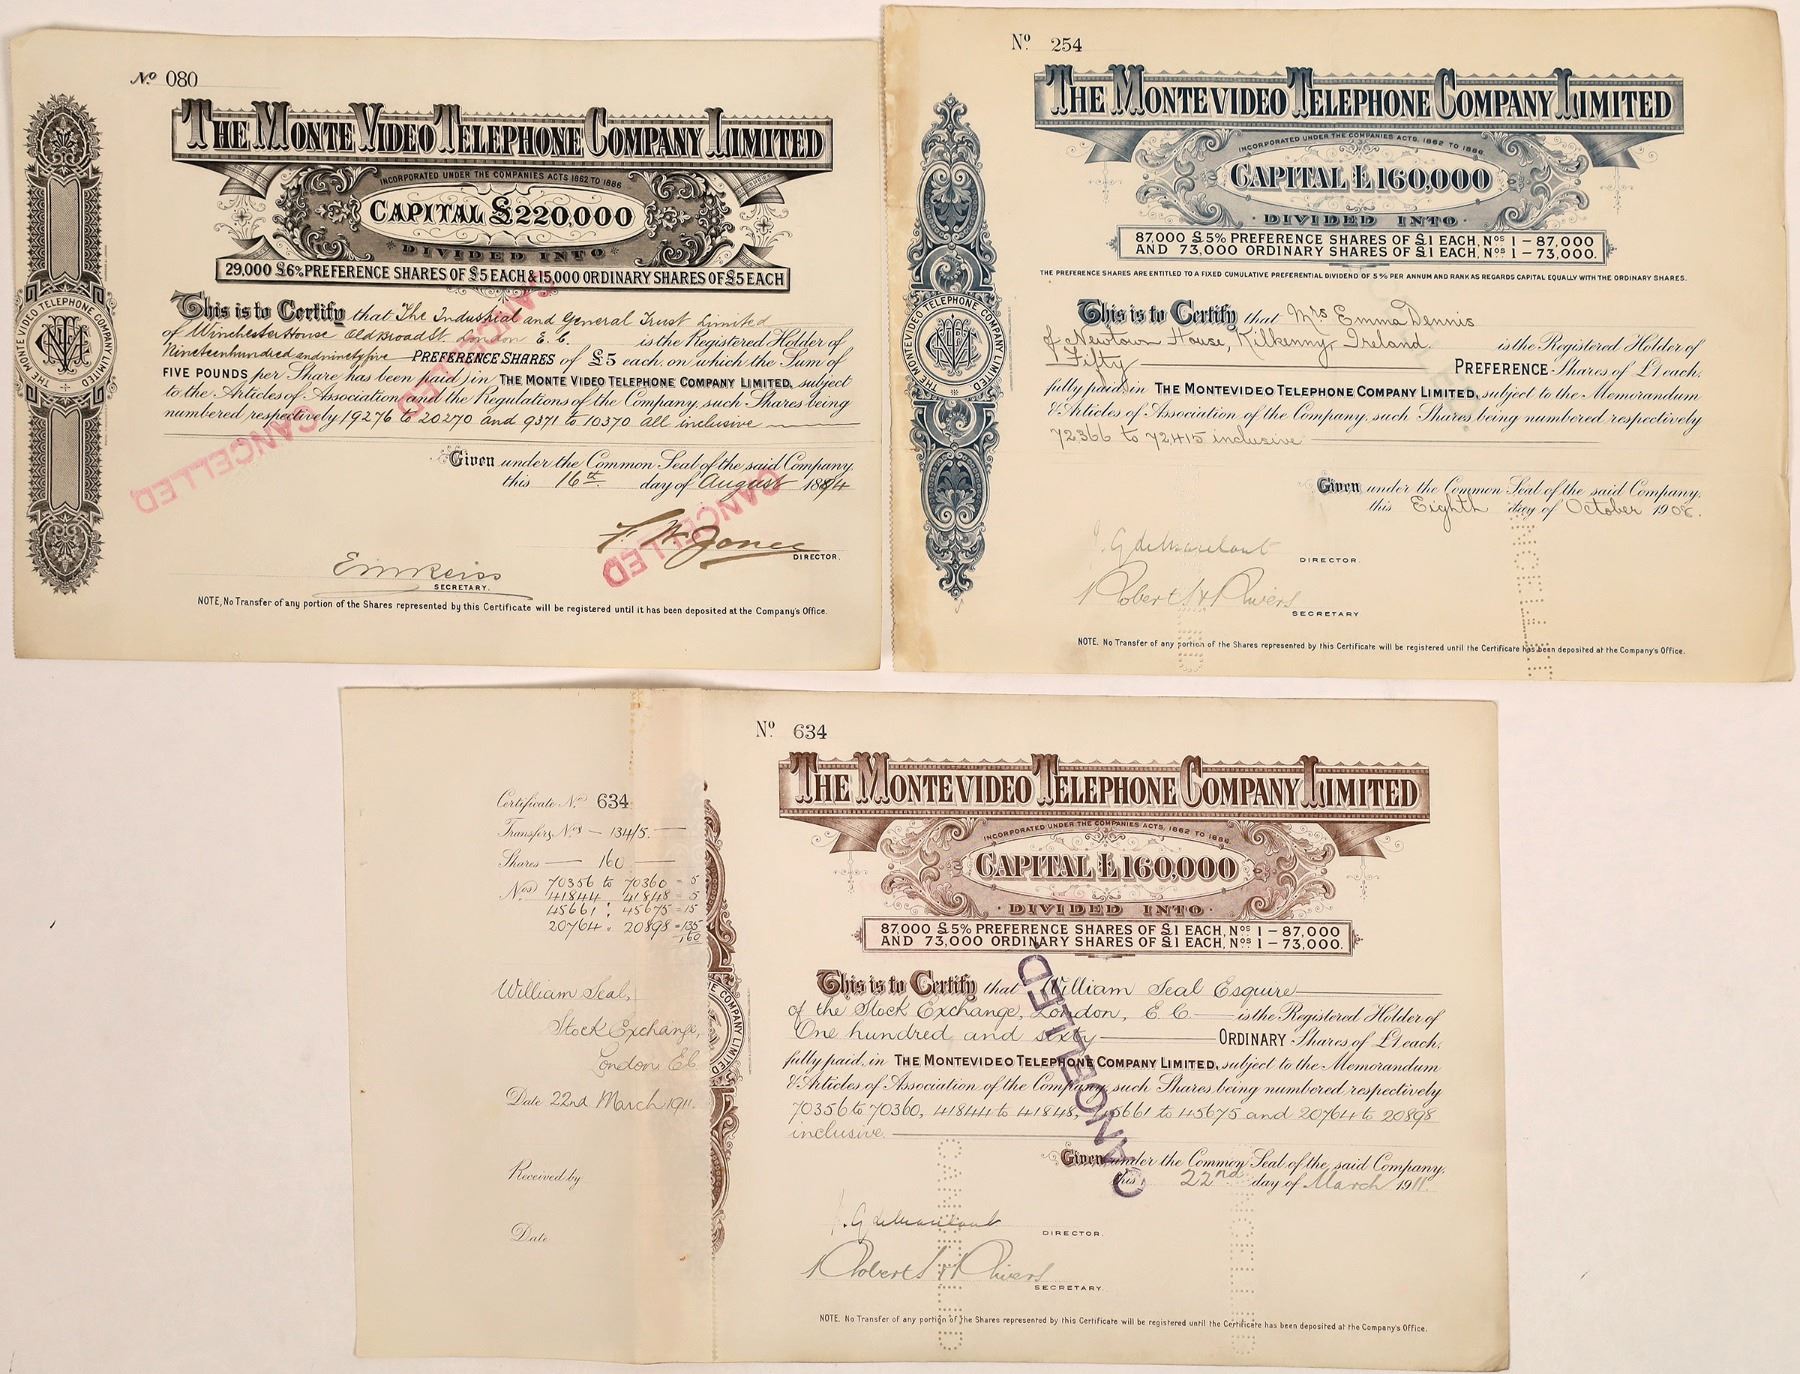 No. 080
THE MONTE VIDEO TELEPHONE COMPANY LIMITED
INCORPORATED UNDER THE COMPANIES ACTS 1862 TO 1886
CAPITAL £220,000
DIVIDED INTO
29,000 £6% PREFERENCE SHARES OF £5 EACH & 15,000 ORDINARY SHARES OF £5 EACH
This is to Certify that The Industrial and General Trust Limited
of Winchester House Old Broad St. London E.C. is the Registered Holder of
Nineteen hundred and ninety five PREFERENCE SHARES of £5 each, on which the Sum of
FIVE POUNDS per Share has been paid, in THE MONTE VIDEO TELEPHONE COMPANY LIMITED, subject
to the Articles of Association and the Regulations of the Company, such Shares being
numbered respectively 19276 to 20270 and 9371 to 10370 all inclusive
Given under the Common Seal of the said Company,
this 16th day of August
F. W. Jones
DIRECTOR.
SECRETARY.
NOTE, No Transfer of any portion of the Shares represented by this Certificate will be registered until it has been deposited at the Company's Office.
THE MONTE VIDEO TELEPHONE COMPANY LIMITED
CANCELLED
CANCELLED
CANCELLED
No. 254
THE MONTEVIDEO TELEPHONE COMPANY LIMITED
INCORPORATED UNDER THE COMPANIES ACTS, 1862 TO 1886
CAPITAL £160,000
DIVIDED INTO
87,000 £5% PREFERENCE SHARES OF £1 EACH, Nos 1-87,000
AND 73,000 ORDINARY SHARES OF £1 EACH, Nos 1-73,000.
THE PREFERENCE SHARES ARE ENTITLED TO A FIXED CUMULATIVE PREFERENTIAL DIVIDEND OF 5% PER ANNUM AND RANK AS REGARDS CAPITAL EQUALLY WITH THE ORDINARY SHARES.
This is to Certify that Mrs Emma Dennis
of Newtown House, Kilkenny, Ireland. is the Registered Holder of
Fifty PREFERENCE Shares of £1 each,
fully paid, in THE MONTEVIDEO TELEPHONE COMPANY LIMITED, subject to the Memorandum
& Articles of Association of the Company, such Shares being numbered respectively
72366 to 72415 inclusive
Given under the Common Seal of the said Company,
this Eighth day of October 1908.
DIRECTOR.
Robert H Rivers
SECRETARY
NOTE. No Transfer of any portion of the Shares represented by this Certificate will be registered until the Certificate has been deposited at the Company's Office.
THE MONTEVIDEO TELEPHONE COMPANY LIMITED
No. 634
THE MONTEVIDEO TELEPHONE COMPANY LIMITED
INCORPORATED UNDER THE COMPANIES ACTS, 1862 TO 1886
CAPITAL £160,000
DIVIDED INTO
87,000 £5% PREFERENCE SHARES OF £1 EACH, Nos 1-87,000
AND 73,000 ORDINARY SHARES OF £1 EACH, Nos 1-73,000.
This is to Certify that William Seal Esquire
of the Stock Exchange, London, E C is the Registered Holder of
One hundred and sixty ORDINARY Shares of £1 each,
fully paid, in THE MONTEVIDEO TELEPHONE COMPANY LIMITED, subject to the Memorandum
& Articles of Association of the Company, such Shares being numbered respectively
70356 to 70360, 41844 to 41848, 45661 to 45675 and 20764 to 20898
inclusive.
Given under the Common Seal of the said Company,
this 22nd day of March 1911.
DIRECTOR.
Robert H Rivers
SECRETARY.
NOTE. No Transfer of any portion of the Shares represented by this Certificate will be registered until the Certificate has been deposited at the Company's Office.
CANCELLED
CANCELLED
Certificate No. 634
Transfers Nos 134/5.
Shares 160
Nos 70356 to 70360 = 5
41844 41848 = 5
45661 : 45675 = 15
20764 . 20898 = 135
160
William Seal,
Stock Exchange,
London E C.
Date 22nd March 1911.
Received by
Date
COMPANY LIMITED